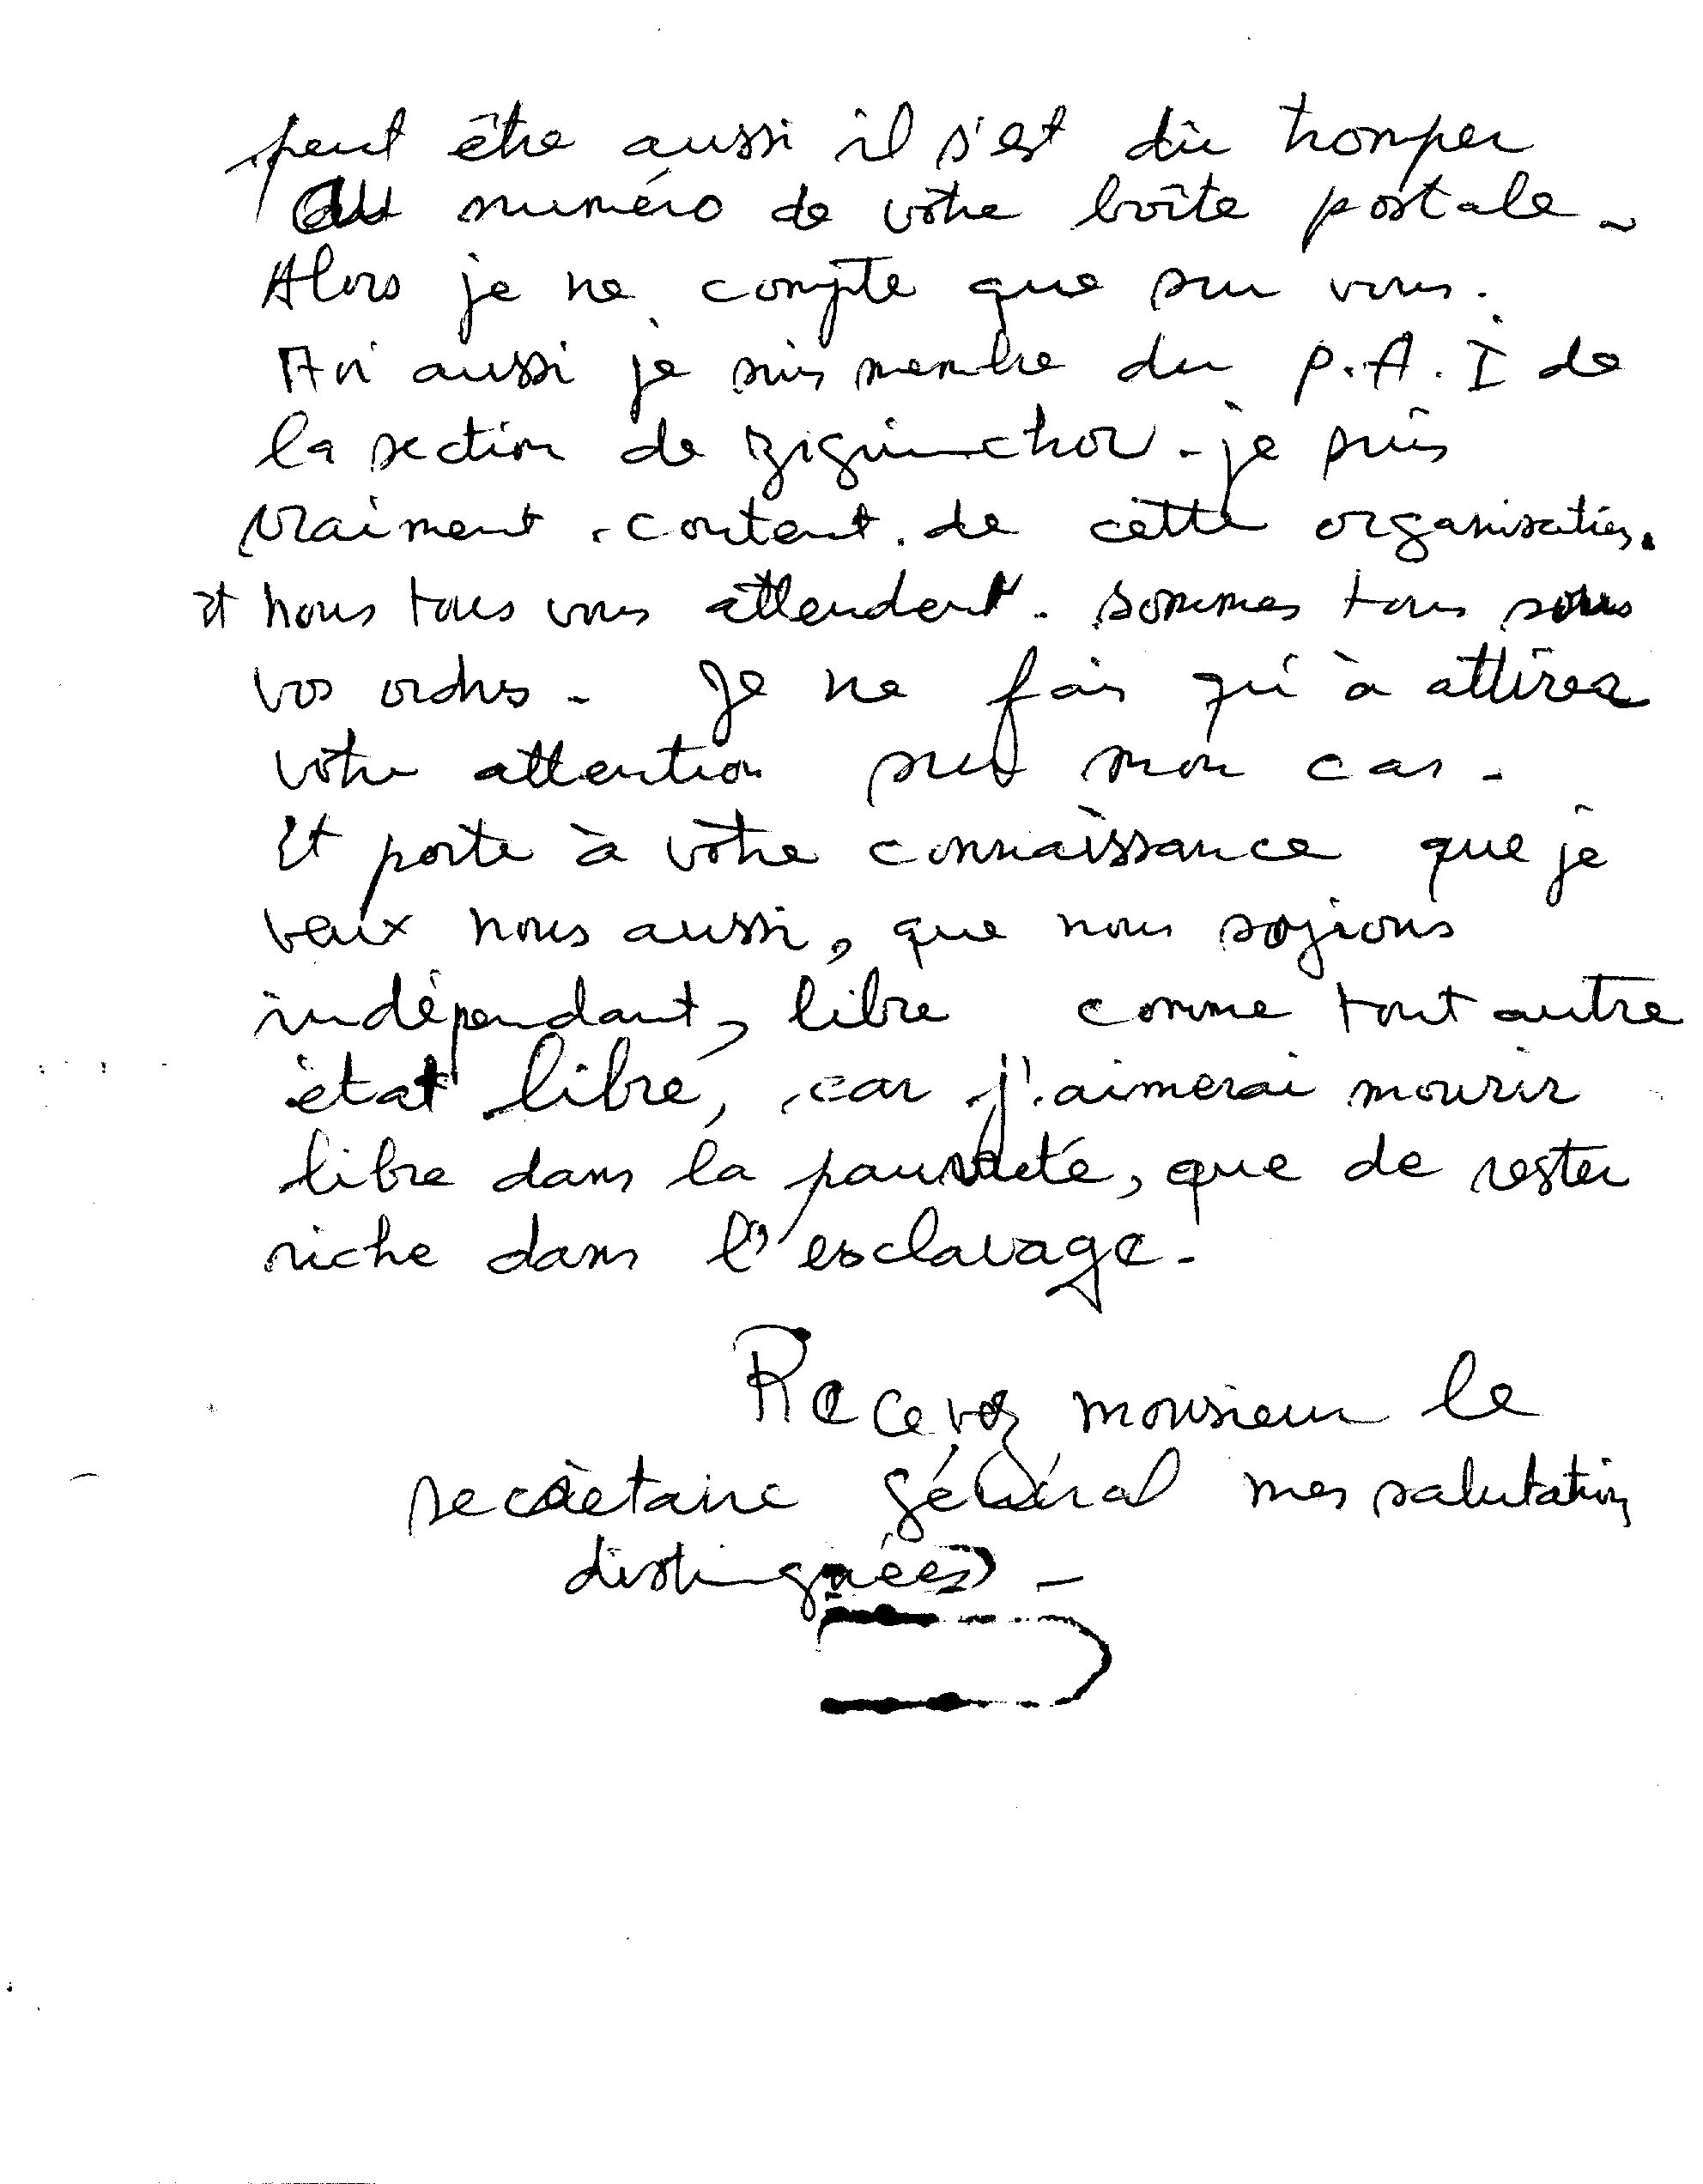 peut être aussi il s'est dû tromper
au numéro de vôtre boîte postale -
Alors je ne compte que sur vous.
Moi aussi je suis membre du P.A.I de
la section de Ziguinchor - je suis
vraiment content de cette organisation.
et nous tous vous attendent - sommes tous sous
vos ordres - Je ne fais qu'à attirer
vôtre attention sur mon cas -
Et porte à vôtre connaissance que je
veux nous aussi, que nous soyions
indépendant, libre comme tout autre
état libre, car j'aimerai mourir
libre dans la pauvreté, que de rester
riche dans l'esclavage -
Recevez monsieur le
secrètaire général mes salutations
distinguées -